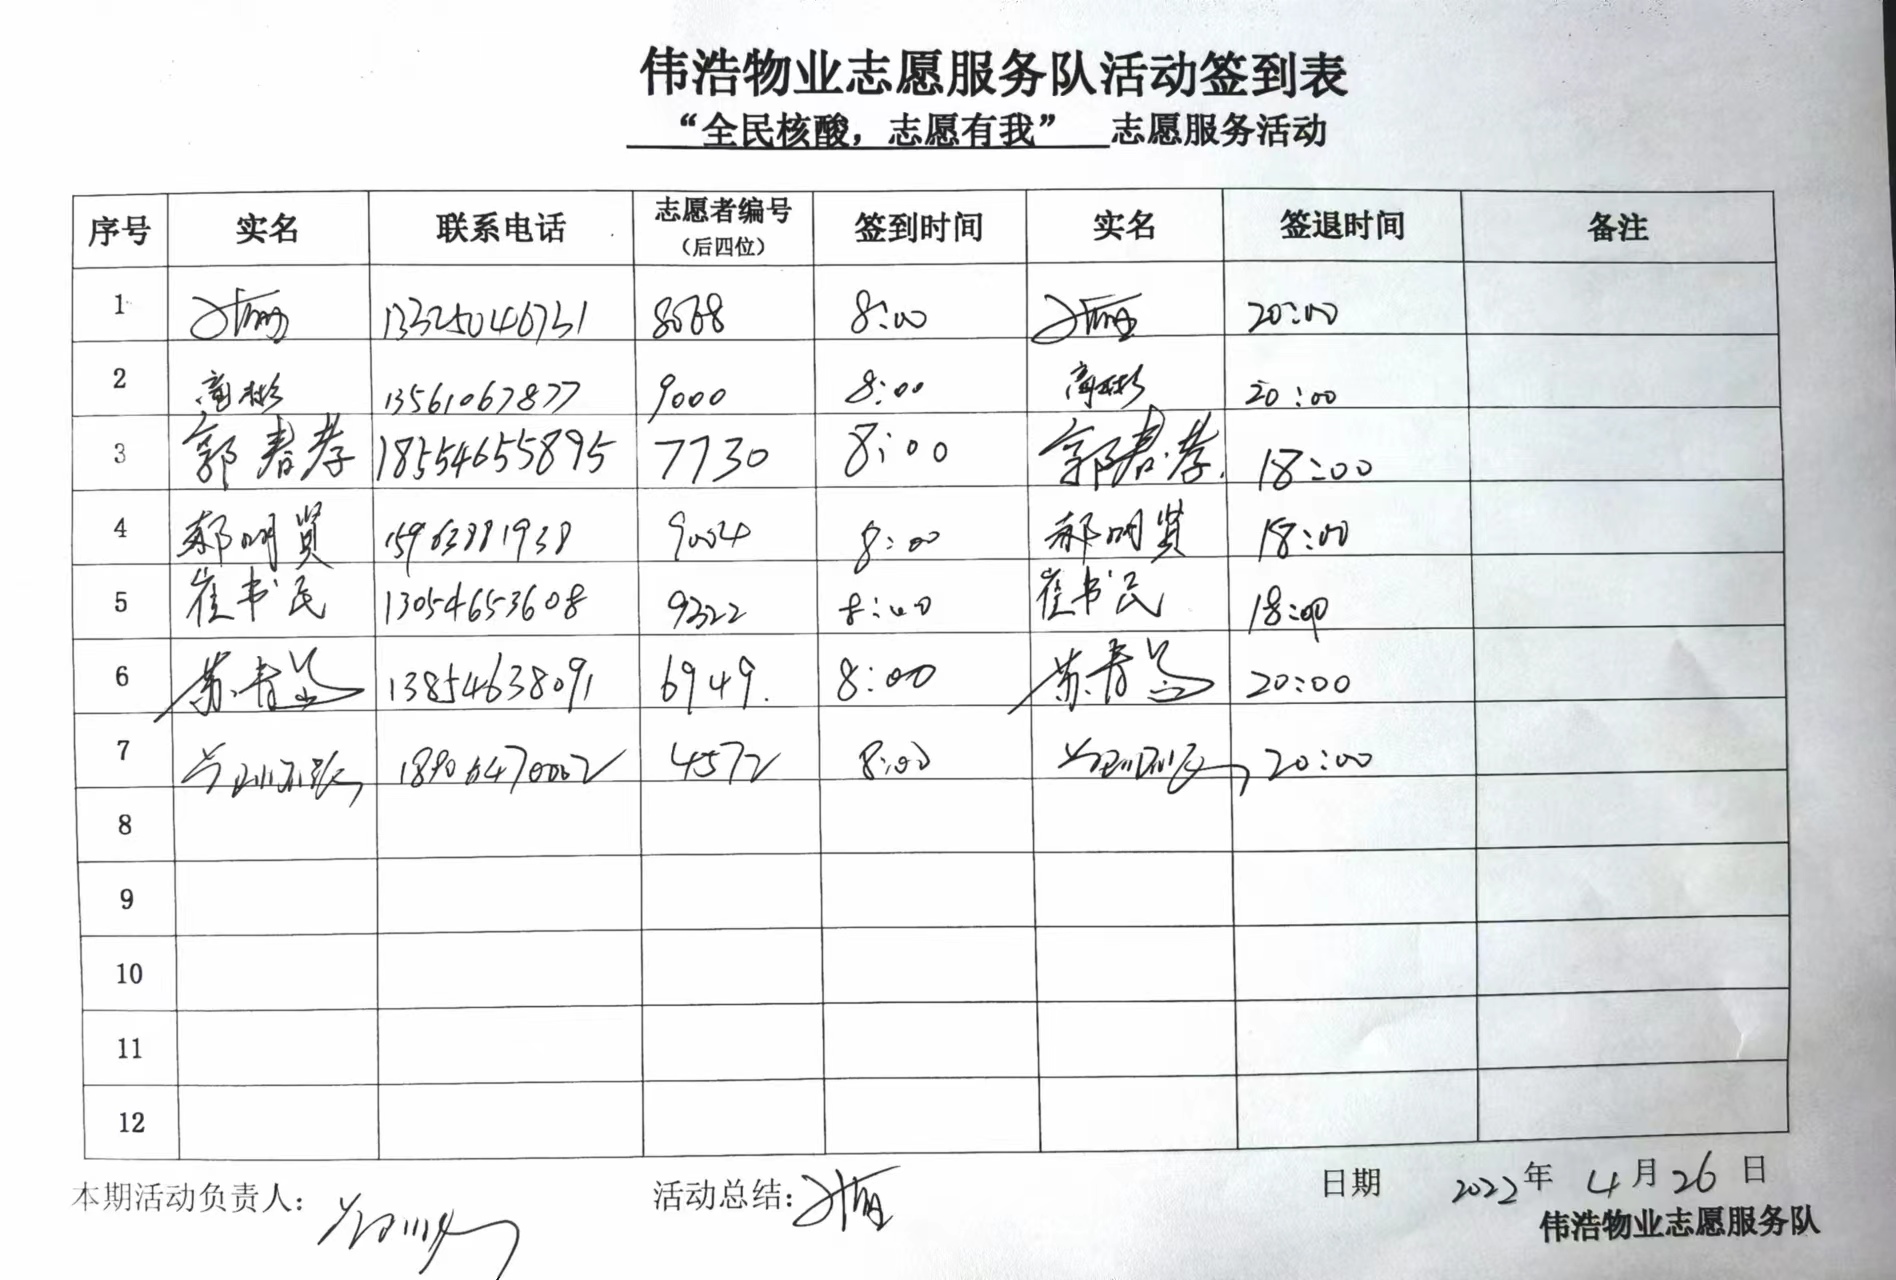 伟浩物业志愿服务队活动签到表
“全民核酸，志愿有我” 志愿服务活动
序号 实名 联系电话 志愿者编号（后四位） 签到时间 实名 签退时间 备注
1 13325046731 8068 8:00 20:00
2 高彬 13561067877 9000 8:00 高彬 20:00
3 郭春孝 18554655895 7730 8:00 郭春孝 18:00
4 郝明贤 15963881938 9004 8:00 郝明贤 18:00
5 崔书民 13054653608 9322 8:00 崔书民 18:00
6 苏青兰 13854638091 6949. 8:00 苏青兰 20:00
7 18906470002 4572 8:00 20:00
8
9
10
11
12
本期活动负责人： 活动总结： 日期 2022年 4月26日
伟浩物业志愿服务队